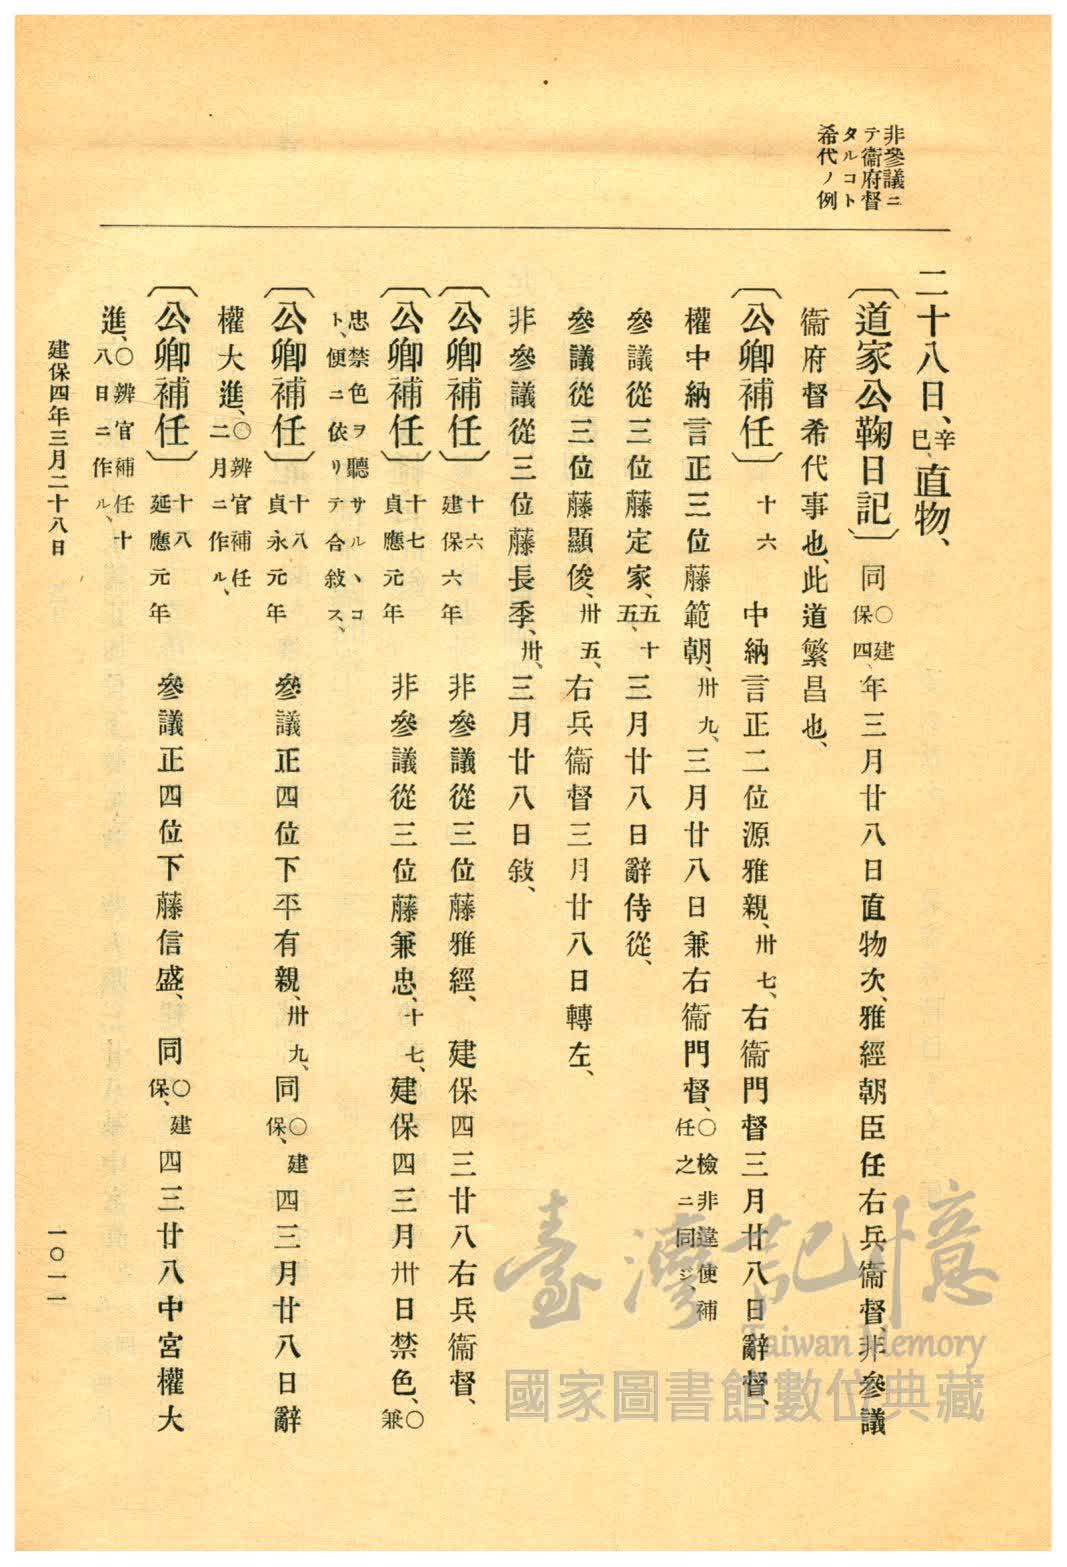 非參議ニ
テ衞府督
タルコト
希代ノ例
二十八日、辛巳、直物、
〔道家公鞠日記〕同〇建保四、年三月廿八日直物次、雅經朝臣任右兵衞督、非參議
衞府督希代事也、此道繁昌也、
〔公卿補任〕十六 中納言正二位源雅親、卅七、右衞門督三月廿八日辭督、
權中納言正三位藤範朝、卅九、三月廿八日兼右衞門督、〇檢非違使補任之ニ同ジ、
參議從三位藤定家、五十五、三月廿八日辭侍從、
參議從三位藤顯俊、卅五、右兵衞督三月廿八日轉左、
非參議從三位藤長季、卅、三月廿八日敍、
〔公卿補任〕十六建保六年 非參議從三位藤雅經、建保四三廿八右兵衞督、
〔公卿補任〕十七貞應元年 非參議從三位藤兼忠、十七、建保四三月卅日禁色、〇兼
忠禁色ヲ聽サルヽコト、便ニ依リテ合敍ス、
〔公卿補任〕十八貞永元年 參議正四位下平有親、卅九、同〇建保、四三月廿八日辭
權大進、〇辨官補任二月ニ作ル、
〔公卿補任〕十八延應元年 參議正四位下藤信盛、同〇建保、四三廿八中宮權大
進、〇辨官補任十八日ニ作ル、
建保四年三月二十八日
一〇一一
臺灣記憶
Taiwan Memory
國家圖書館數位典藏